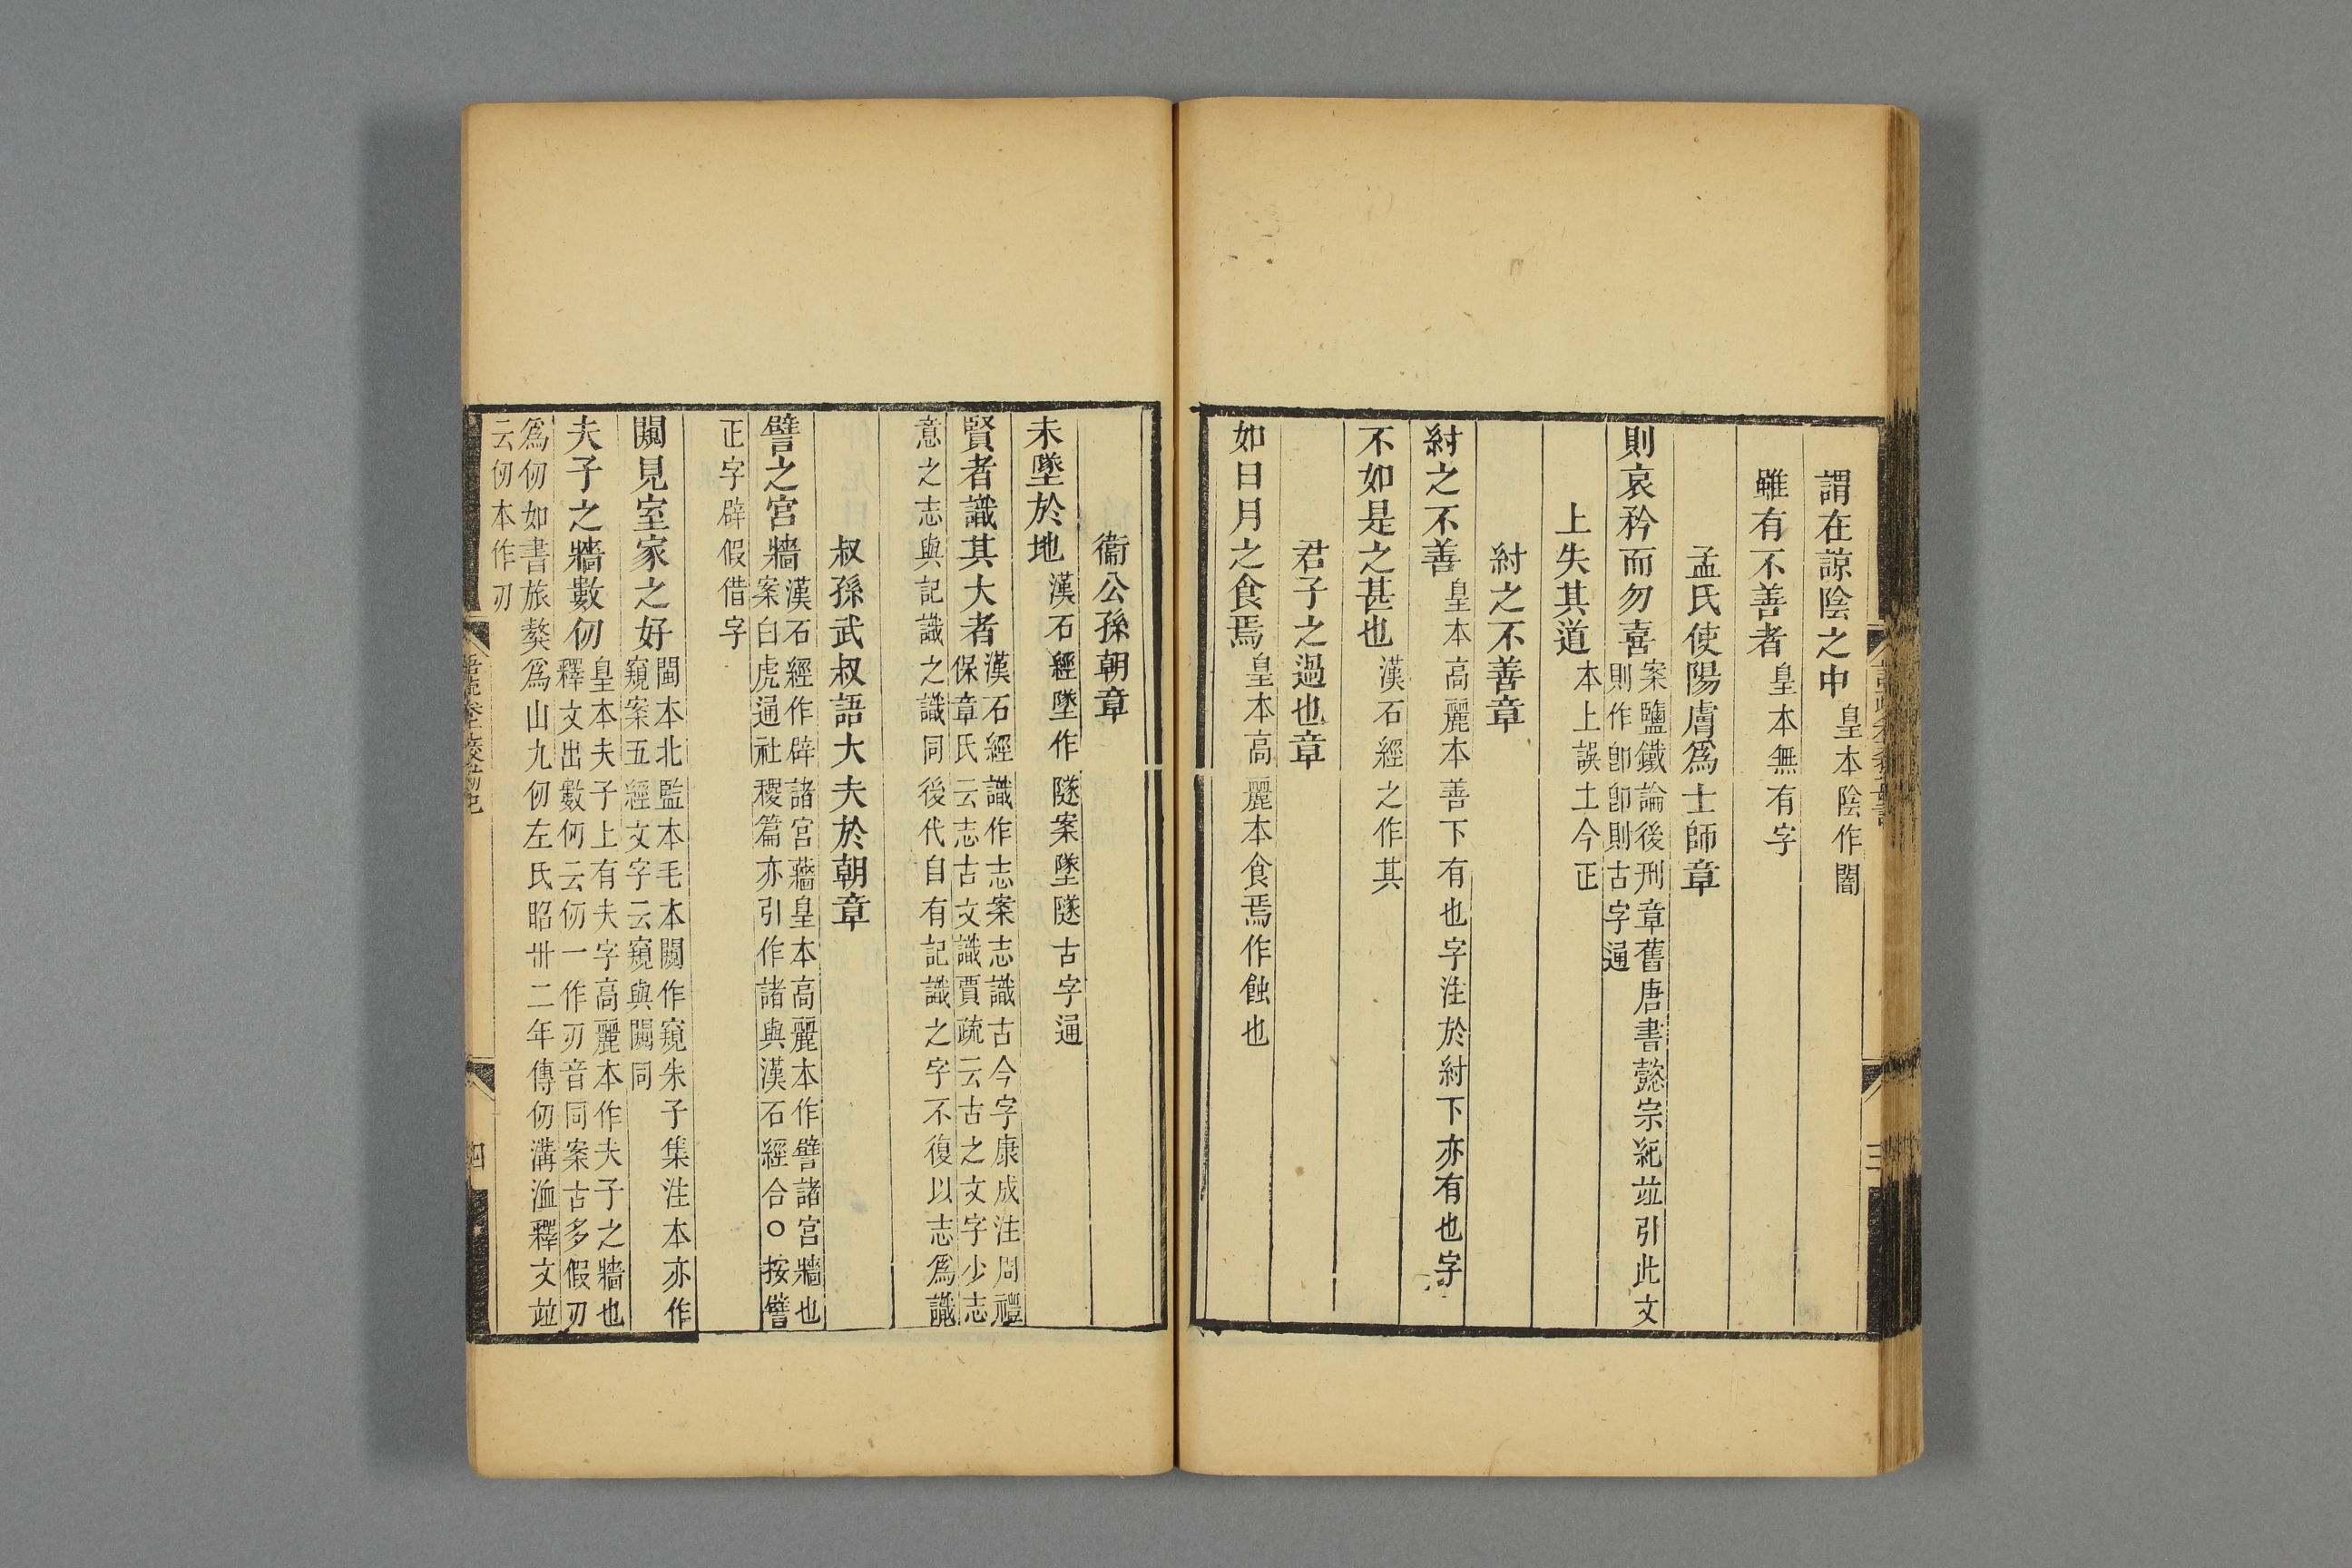 謂在諒陰之中皇本陰作闇
雖有不善者皇本無有字
孟氏使陽膚爲士師章
則哀矜而勿喜案鹽鐵論後刑章舊唐書懿宗紀竝引此文
則作卽卽則古字通
上失其道本上誤土今正
紂之不善章
紂之不善皇本高麗本善下有也字注於紂下亦有也字
不如是之甚也漢石經之作其
君子之過也章
如日月之食焉皇本高麗本食焉作蝕也
衞公孫朝章
未墜於地漢石經墜作隧案墜隧古字通
賢者識其大者漢石經識作志案志識古今字康成注周禮
保章氏云志古文識賈疏云古之文字少志
意之志與記識之識同後代自有記識之字不復以志爲識
叔孫武叔語大夫於朝章
譬之宮牆漢石經作辟諸宮牆皇本高麗本作譬諸宮牆也
案白虎通社稷篇亦引作諸與漢石經合○按譬
正字辟假借字
闚見室家之好閩本北監本毛本闚作窺朱子集注本亦作
窺案五經文字云窺與闚同
夫子之牆數仞皇本夫子上有夫字高麗本作夫子之牆也
釋文出數仞云仞一作刃音同案古多假刃
爲仞如書旅獒爲山九仞左氏昭卅二年傳仞溝洫釋文竝
云仞本作刃
四